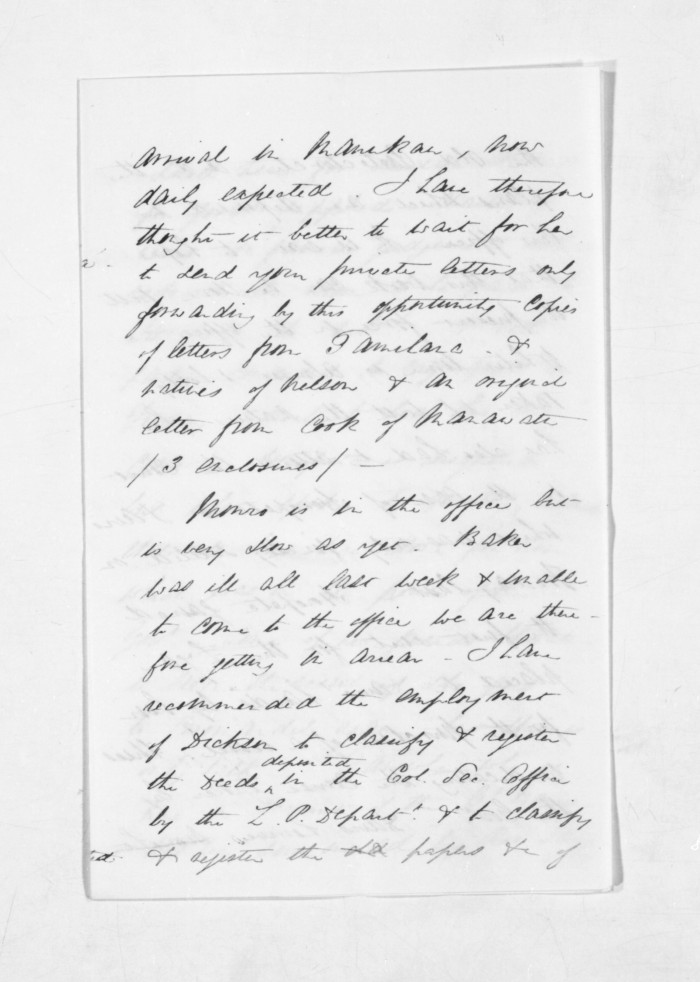 arrival in Manukau, now
daily expected. I have therefore
thought it better to wait for her
to send your private letters only
forwarding by this opportunity copies
of letters from &
natives of Nelson & an original
letter from Cook of Manawatu
/3 enclosures/ —
Monro is in the office but
is very slow as yet. Baker
was ill all last week & unable
to come to the office we are there-
fore getting in arrear - I have
recommended the employment
of Dickson to classify & register
the Deeds deposited in the Col. Sec. Office
by the L. P. Depart.t & to classify
& register the papers &c of